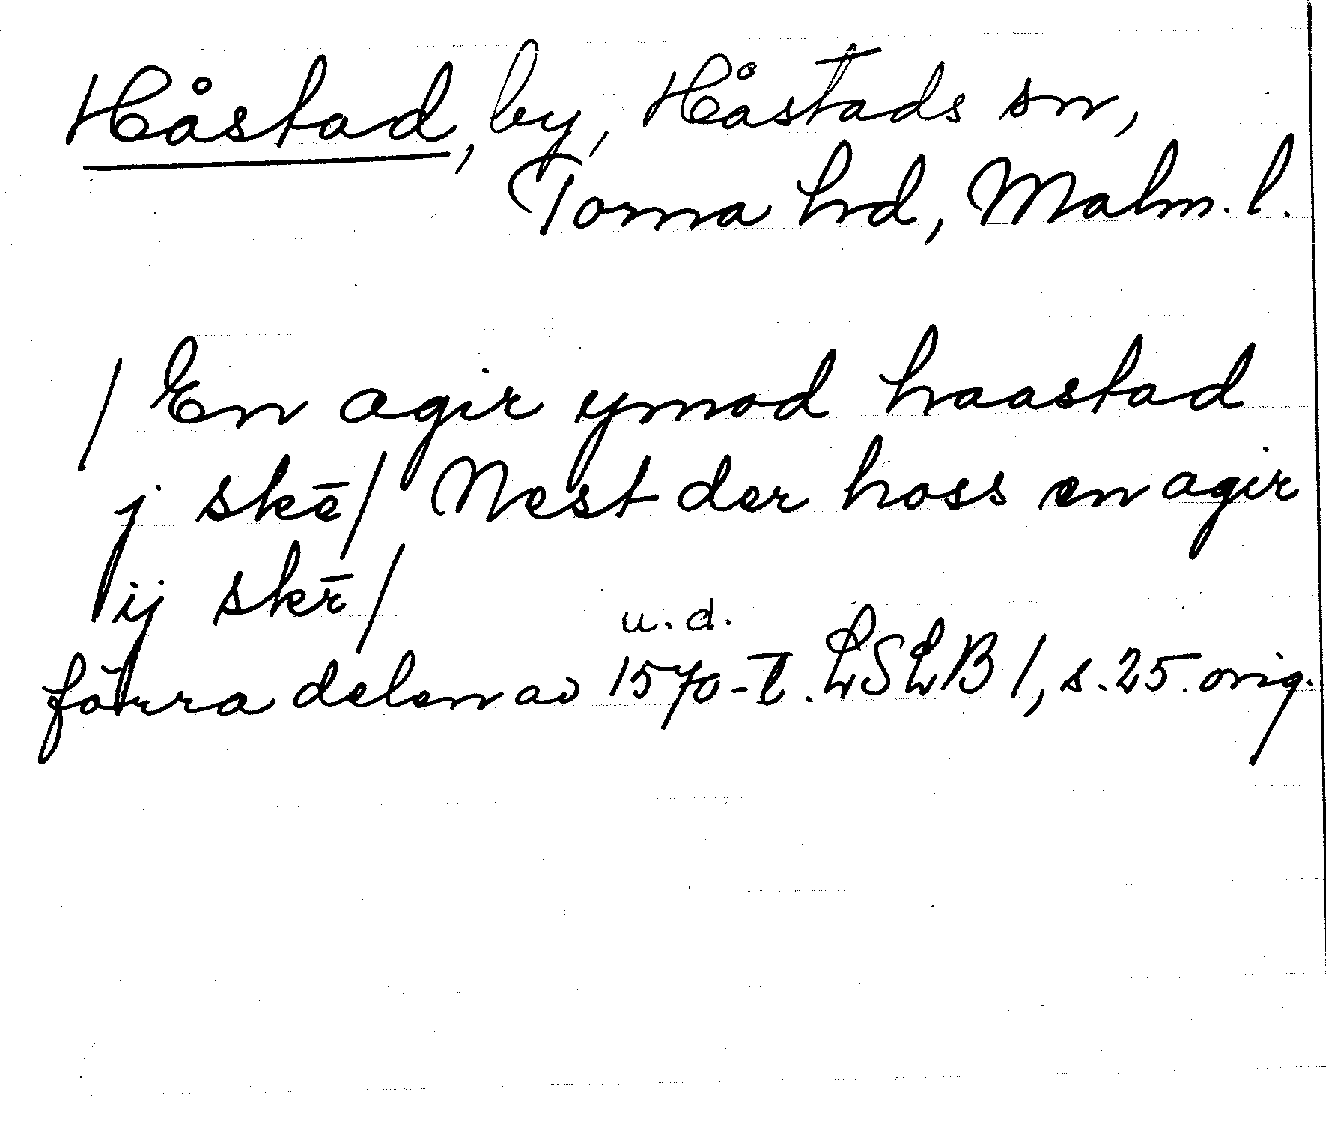 Håstad, by, Håstads sn,
Torna hd, Malm. l.
/ En agir ymod haastad
j skē/ Nest der hoss en agir
ij skē/
u.d.
förra delen av 1570-t. LSLB 1, s. 25. orig.